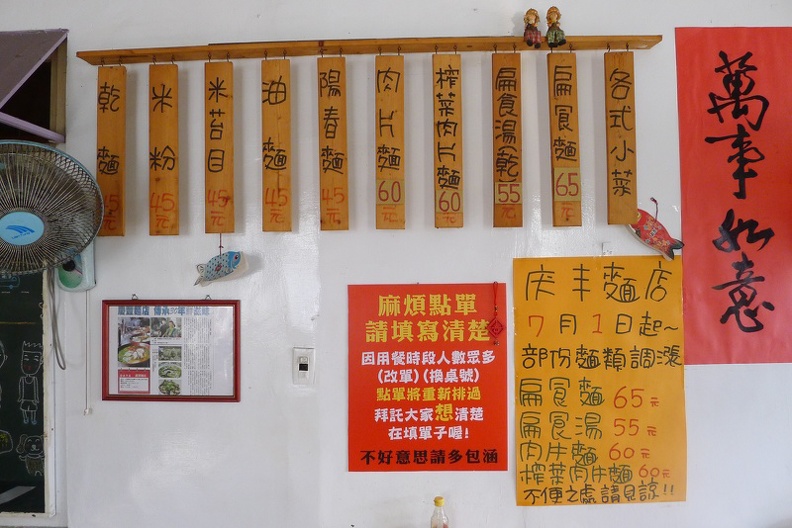 各式小菜
扁食麵 65元
扁食湯(乾) 55元
榨菜肉片麵 60元
肉片麵 60元
陽春麵 45元
油麵 45元
米苔目 45元
米粉 45元
乾麵 45元
萬事如意
麻煩點單
請填寫清楚
因用餐時段人數眾多
(改單)(換桌號)
點單將重新排過
拜託大家想清楚
在填單子喔!
不好意思請多包涵
庆丰麵店
7月1日起~
部份麵類調漲
扁食麵 65元
扁食湯 55元
肉片麵 60元
榨菜肉片麵 60元
不便之處請見諒!!